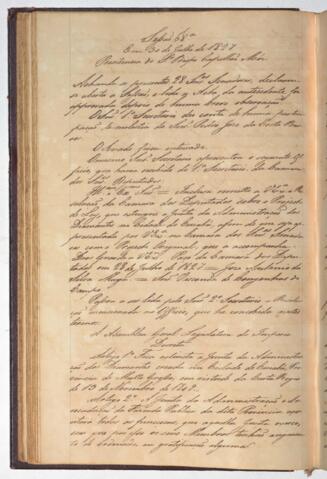 Sessão 68ª
Em 30 de Julho de 1827
Presidencia do Sr. Bispo Capellão Mór
Achando-se presentes 28 Srs. Senadores, declarou-
se aberta a Sessão, e lida a Acta da antecedente, foi
approvada depois de huma breve observação.
O Sr. 1º Secretario deo conta de huma partici-
pação de molestia do Sr. Pedro José da Costa Bar-
ros
O Senado ficou inteirado.
O mesmo Sr. Secretario apresentou o seguinte Of-
ficio, que havia recebido do 1º Secretario da Camara
dos Srs. Deputados.
Illmo. Exmo. Sr. = Incluso remetto a V. Exª a Re-
solução da Camara dos Deputados sobre o Projecto
de Lei, que extingue a Junta da Administração dos
Diamantes na Cidade do Cuiabá, afim de ser
apresentada por V. Exª na Camara dos Srs. Senadores
com o Projecto Original, que o acompanha
Deos Guarde a V. Exª Paço da Camara dos Depu-
tados em 28 de Julho de 1827 = José Antonio da
Silva Maya = Sr. Visconde de Congonhas do
Campo.
Passou a ser lida pelo Sr. 2º Secretario a Resolução
mencionada no Officio, que he concebida nestes
termos
A Assemblea Geral Legislativa do Imperio
Decreta
Artigo 1º Fica extincta a Junta da Administra-
ção dos Diamantes creada na Cidade do Cuiabá, Pro-
vincia de Mato Grosso, em virtude da Carta Regia
de 13 de Novembro de 1809.
Artigo 2º A Junta da Administração e Ar-
recadação da Fazenda Publica da dita Provincia
as funcções, que aquella Junta exerce,
sem que por isso os seus Membros tenhão augmen-
to de Ordenado, ou gratificação alguma.